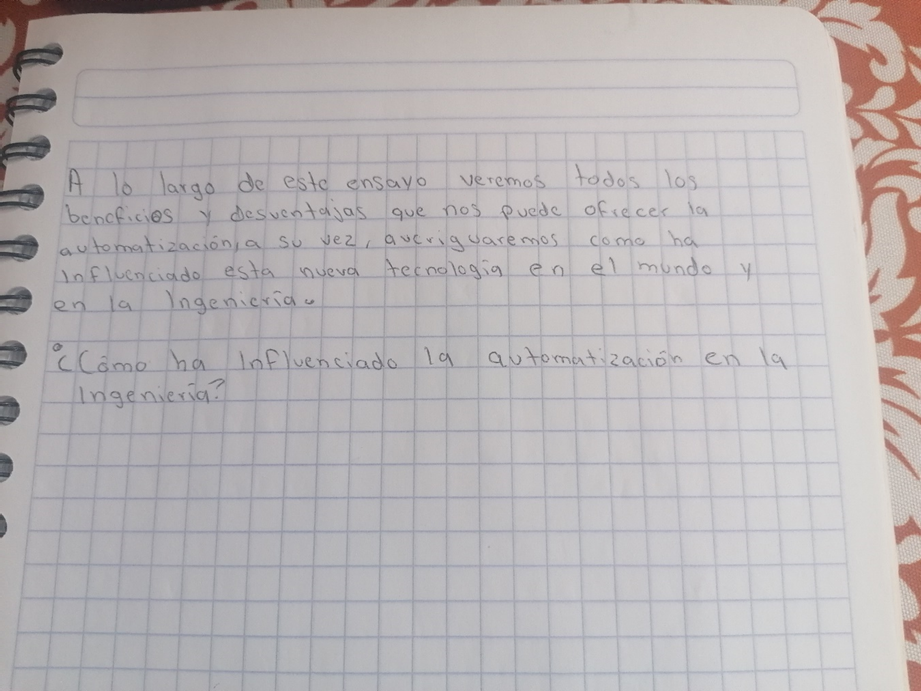 A lo largo de este ensayo veremos todos los
beneficios y desventajas que nos puede ofrecer la
automatización, a su vez, averiguaremos como ha
influenciado esta nueva tecnologia en el mundo y
en la Ingeniería.
¿Cómo ha Influenciado la automatización en la
Ingeniería?